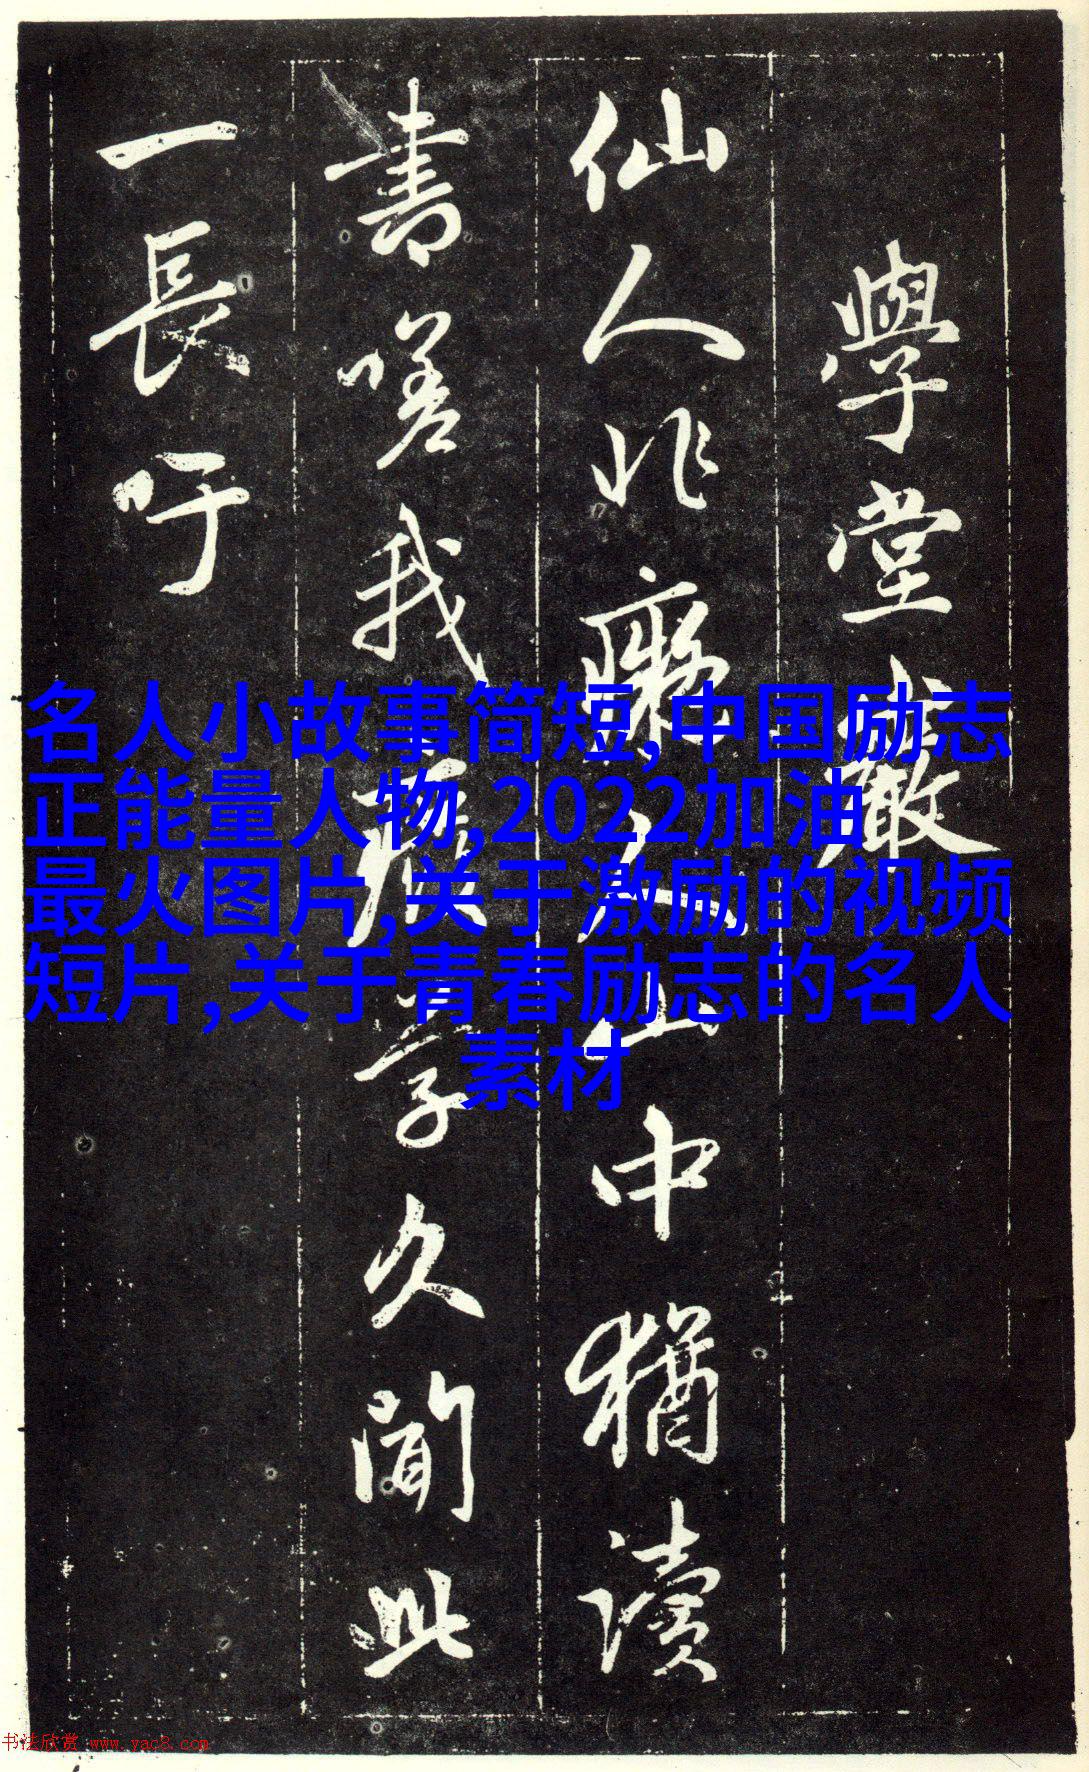 學堂巖
仙人非癡人山中猶讀
書嗟我廢学久聞此
一長吁
名人小故事简短,中国励志
正能量人物,2022加油
最火图片,关于激励的视频
短片,关于青春励志的名人
素材
书法欣赏 www.yac8.com